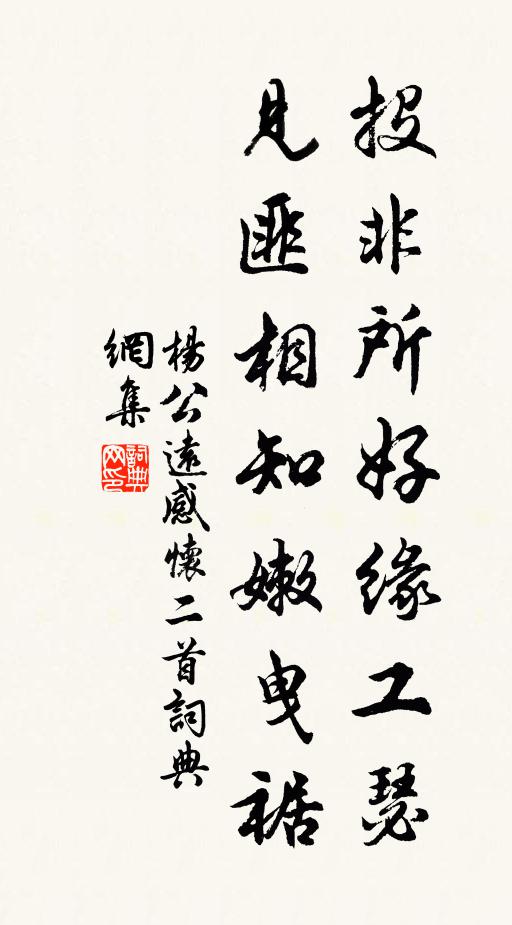 投非所好緣工瑟
見匪相知嫩曳裾
楊公遠感懷二首詞典
網集
詞典网印